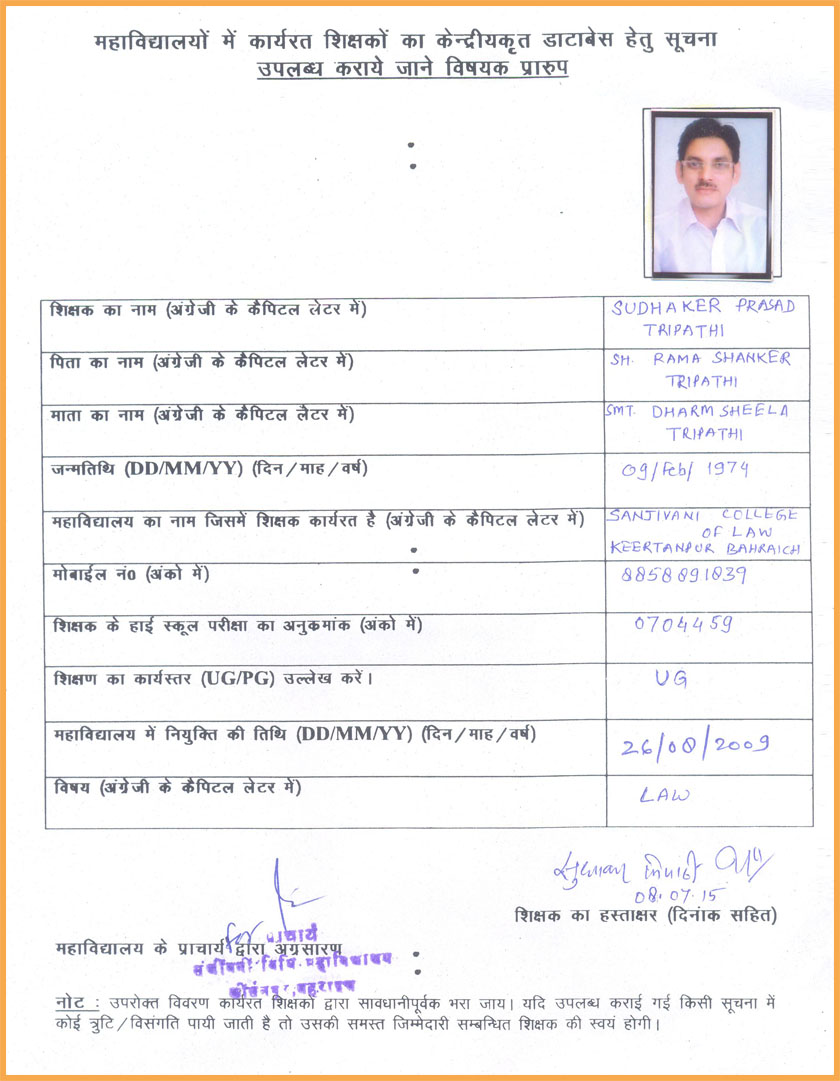 महाविद्यालयों में कार्यरत शिक्षकों का केन्द्रीयकृत डाटाबेस हेतु सूचना
उपलब्ध कराये जाने विषयक प्रारुप
शिक्षक का नाम (अंग्रेजी के कैपिटल लेटर में)
SUDHAKER PRASAD
TRIPATHI
पिता का नाम (अंग्रेजी के कैपिटल लेटर में)
SH. RAMA SHANKER
TRIPATHI
माता का नाम (अंग्रेजी के कैपिटल लैटर में)
SMT. DHARM SHEELA
TRIPATHI
जन्मतिथि (DD/MM/YY) (दिन/माह/वर्ष)
09/Feb/1974
महाविद्यालय का नाम जिसमें शिक्षक कार्यरत है (अंग्रेजी के कैपिटल लेटर में)
SANJIVANI COLLEGE
OF LAW
KEERTANPUR BAHRAICH
मोबाईल नं0 (अंको में)
8858891839
शिक्षक के हाई स्कूल परीक्षा का अनुकमांक (अंको में)
0704459
शिक्षण का कार्यस्तर (UG/PG) उल्लेख करें।
UG
महाविद्यालय में नियुक्ति की तिथि (DD/MM/YY) (दिन/माह/वर्ष)
26/08/2009
विषय (अंग्रेजी के कैपिटल लेटर में)
LAW
08.07.15
शिक्षक का हस्ताक्षर (दिनांक सहित)
प्राचार्य
महाविद्यालय के प्राचार्य द्वारा अग्रसारण
विधि महाविद्यालय
नोट : उपरोक्त विवरण कार्यरत शिक्षकों द्वारा सावधानीपूर्वक भरा जाय। यदि उपलब्ध कराई गई किसी सूचना में
कोई त्रुटि/विसंगति पायी जाती है तो उसकी समस्त जिम्मेदारी सम्बन्धित शिक्षक की स्वयं होगी।